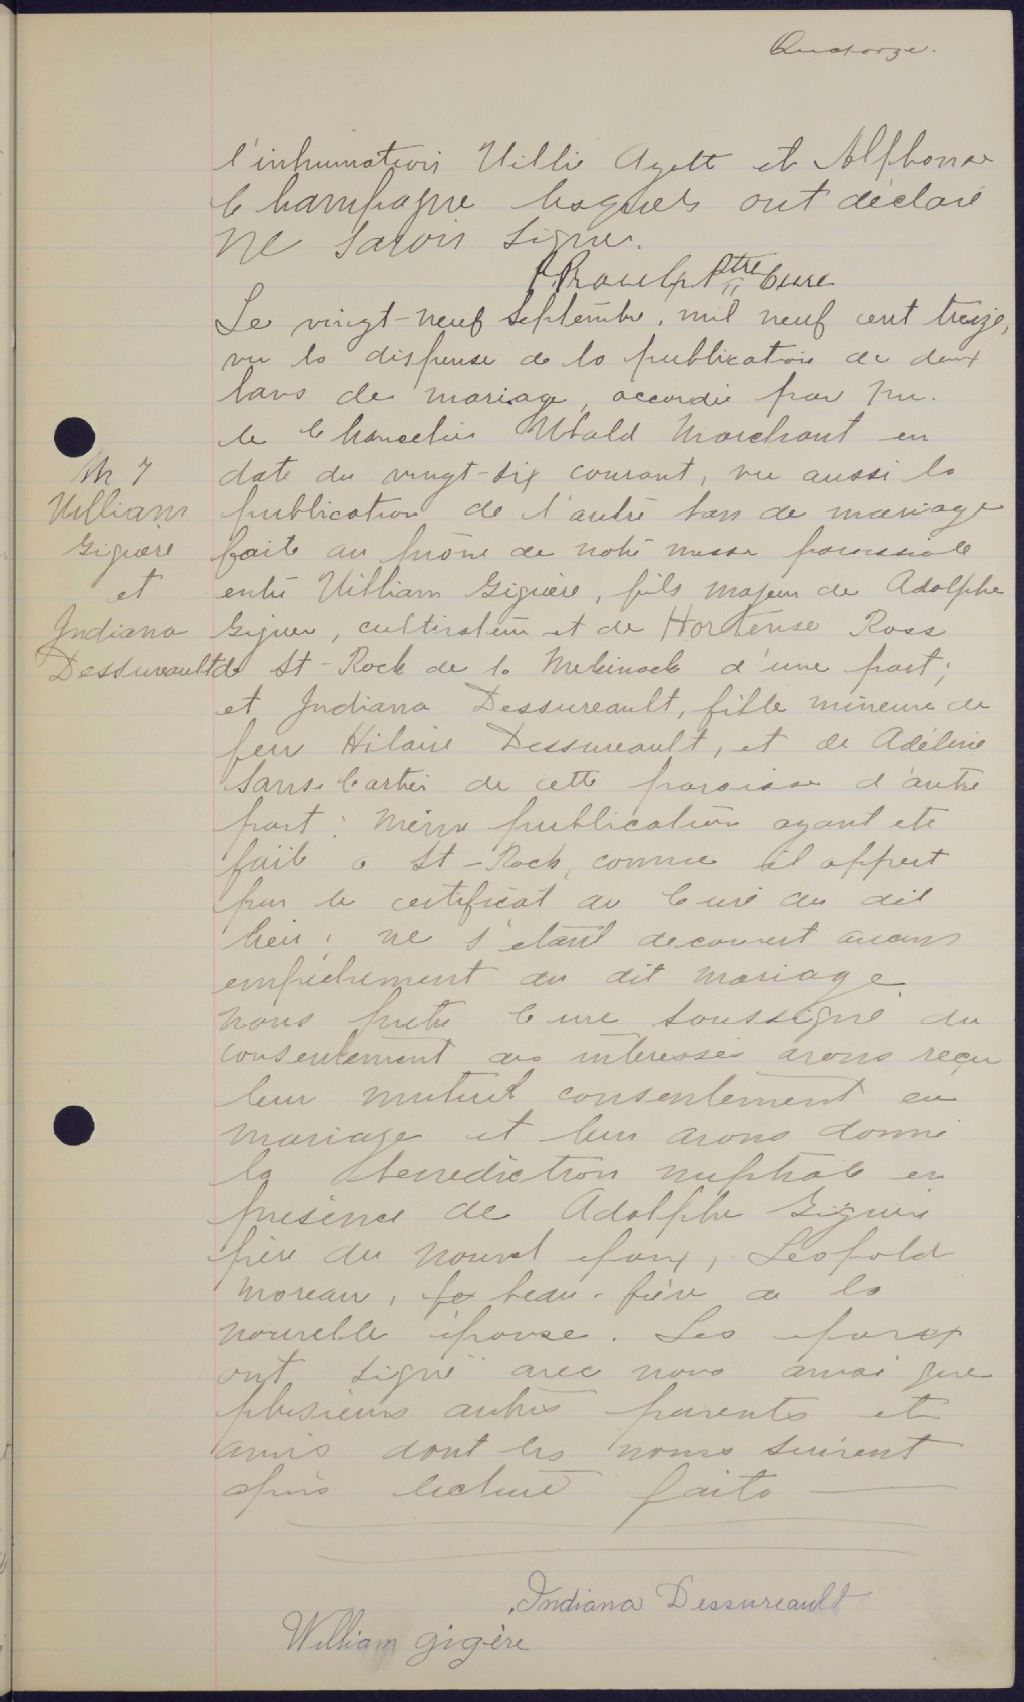 Quatorze.
l'inhumation Willie Ayott et Alphonse
Champagne lesquels ont déclaré
ne savoir signer.
Ptre Curé
Le vingt-neuf Septembre, mil neuf cent treize,
vu la dispense de la publication de deux
bans de mariage, accordée par Mr.
le Chancelier Ubald Marchant en
date du vingt-six courant, vu aussi la
publication de l'autre ban de mariage
faite au prône de notre messe paroissiale
entre William Giguère, fils majeur de Adolphe
Giguère, cultivateur et de Hortense Ross
de St-Rock de la Mekinack d'une part;
et Indiana Dessureault, fille mineure de
feu Hilaire Dessureault, et de Adéline
Sans-Cartier de cette paroisse d'autre
part: même publication ayant été
faite à St-Rock, comme il appert
par le certificat du Curé du dit
lieu; ne s'étant découvert aucun
empêchement au dit mariage
nous prêtre Curé soussigné du
consentement des intéressés avons reçu
leur mutuel consentement en
mariage et leur avons donné
la bénédiction nuptiale en
présence de Adolphe Giguère
père du nouvel époux, Léopold
Moreau, beau-frère de la
nouvelle épouse. Les époux
ont signé avec nous ainsi que
plusieurs autres parents et
amis dont les noms suivent
après lecture faite
M 7
William
Giguère
et
Indiana
Dessureault
Indiana Dessureault
William gigère